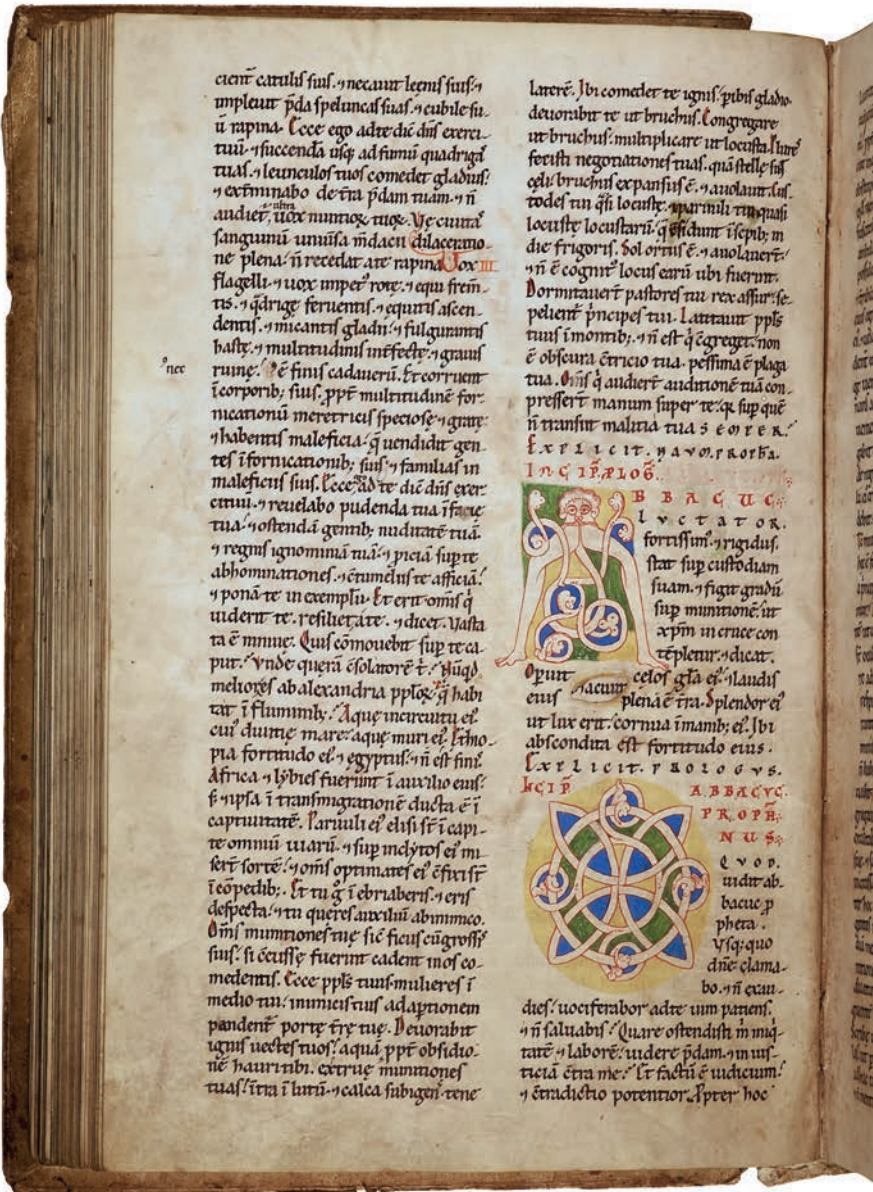 cienť catulis suis. ⁊ necauit leęnis suis: ⁊
impleuit p̄da speluncas suas. ⁊ cubile su-
ū rapina. Ecce ego ad te dic̄ dn̄s exerci-
tuū. ⁊ succendā usq; ad fumū quadrigaˢ
tuas. ⁊ leunculos tuos comedet gladius:
⁊ ext̄minabo de t̄ra p̄dam tuam. ⁊ n̄
audiet᷒ ultra uox nuntioꝝ tuoꝝ. Vę ciuitaˢ
sanguinū uniūsa m̄dacii dilaceratio-
ne plena: n̄ recedet a te rapina Vox III
flagelli ⁊ uox impet᷒ rotę. ⁊ equi frem̄-
tis. ⁊ q̄drigę feruentis. ⁊ equitis ascen-
dentis. ⁊ micantis gladii: ⁊ fulgurantis
hastę. ⁊ multitudinis int̄fectę: ⁊ grauis
nec
ruinę. ē finis cadauerū. Et corruent
ī corporib; suis. ꝓpt̄ multitudinē for-
nicationū meretricis speciosę ⁊ gratę:
⁊ habentis maleficia: q̄ uendidit gen-
tes ī fornicationib; suis ⁊ familias in
maleficiis suis. Ecce ad te dic̄ dn̄s exer-
cituū. ⁊ reuelabo pudenda tua ī facie
tua: ⁊ ostendā gentib; nuditatē tuā.
⁊ regnis ignominiā tuā: ⁊ ꝓiciā sup̄ te
abhominationes. ⁊ c̄tumeliis te afficiā:
⁊ ponā te in exemplū. Et erit omīs q̇
uiderit te. resiliet a te. ⁊ dicet. Vasta
ta ē niniue. Quis cōmouebit sup̄ te ca-
put: Vnde querā c̄solatorē t̄: Nūqd
melior es ab alexandria ppl̄oꝝ. q̄ habi
tat ī fluminib; Aquę in circuitu ei᷒
cui᷒ diuitię mare: aquę muri ei᷒. Ethio-
pia fortitudo ei᷒ ⁊ egyptus: ⁊ n̄ est finis
Africa ⁊ lybies fuerunt ī auxilio eius:
s̄ ⁊ ipsa ī transmigrationē ducta ē ī
captiuitatē. Paruuli ei᷒ elisi st̄ ī capi-
te omniū uiarū. ⁊ sup̄ inclytos ei᷒ mi
sert̄ sortē: ⁊ om̄s optimates ei᷒ c̄fixi st̄
ī cōpedib;. Et tu g̊ īebriaberis. ⁊ eris
despecta: ⁊ tu queres auxiliū ab inimico.
Om̄s munitiones tuę sic̄ ficus cū grossis
suis: si c̄cussę fuerint cadent in os co-
medentis. Ecce ppl̄s tuus mulieres ī
medio tui: inimicis tuis adaꝑtionem
pandent᷒ portę t̄rę tuę. Deuorabit
ignis uectes tuos: aquā ꝓpt̄ obsidio-
nē hauri tibi. extruę munitiones
tuas: ītra ī lutū ⁊ calca subigens tene
laterē. Ibi comedet te ignis: ꝑibis gladio.
deuorabit te ut bruchus. Congregare
ut bruchus: multiplicare ut locusta. Plures
fecisti negotiationes tuas. quā stellę sint
cęli: bruchus expansus ē. ⁊ auolauit. Cus-
todes tui q̄si locustę. ⁊ paruuli tui quasi
locustę locustarū. q̄ c̄sidunt ī sepib; in
die frigoris. Sol ortus ē. ⁊ auolauert̄:
⁊ n̄ ē cognit᷒ locus earū ubi fuerint.
Dormitauert̄ pastores tui rex assur: se-
pelient᷒ p̄ncipes tui. Latitauit ppl̄s
tuus ī montib; ⁊ n̄ est q̇ c̄greget. non
ē obscura c̄tricio tua. pessima ē plaga
tua. Om̄s q̇ audiert̄ auditionē tuā con-
pressert̄ manum super te: qꝛ sup̄ quē
n̄ transiit malitia tua SEMPER:
EXPLICIT. NAVM. PROPħA.
INCIP̄. PLOG̅.
ABBACUC
LVCTATOR.
fortissim᷒. ⁊ rigidus.
stat sup̄ custodiam
suam. ⁊ figit gradū
sup̄ munitionē. ut
xp̄m in cruce con
tēpletur. ⁊ dicat.
Oꝑuit celos gl̄a ei᷒. ⁊ laudis
eius plena ē t̄ra. Splendor ei᷒
ut lux erit: cornua ī manib; ei᷒. Ibi
abscondita est fortitudo eius.
EXPLICIT. PROLOGVS.
INCIP̄. ABBACVC.
PROPħ.
NUS
QVOD.
uidit ab-
bacuc ꝓ
pheta.
Vsq; quo
dn̄e clama-
bo. ⁊ n̄ exau-
dies: uociferabor ad te uim patiens.
⁊ n̄ saluabis: Quare ostendisti m̄ iniq̇-
tatē ⁊ laborē: uidere p̄dam. ⁊ iniius-
ticiā c̄tra me: Et factū ē iudicium:
⁊ c̄tradictio potentior. Ꝓpter hoc